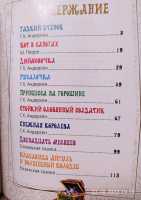 СОДЕРЖАНИЕ
ГАДКИЙ УТЁНОК
Г.Х. Андерсен 3
КОТ В САПОГАХ
Ш. Перро 19
ДЮЙМОВОЧКА
Г.Х. Андерсен 29
РУСАЛОЧКА
Г.Х. Андерсен 41
ПРИНЦЕССА НА ГОРОШИНЕ
Г.Х. Андерсен 61
СТОЙКИЙ ОЛОВЯННЫЙ СОЛДАТИК
Г.Х. Андерсен 67
СНЕЖНАЯ КОРОЛЕВА
Г.Х. Андерсен 79
ДВЕНАДЦАТЬ МЕСЯЦЕВ
Словацкая сказка
КРАСАВИЦА АЙГУЛЬ
И ВОЛШЕБНЫЙ КОЛОДЕЦ
Казахская сказка